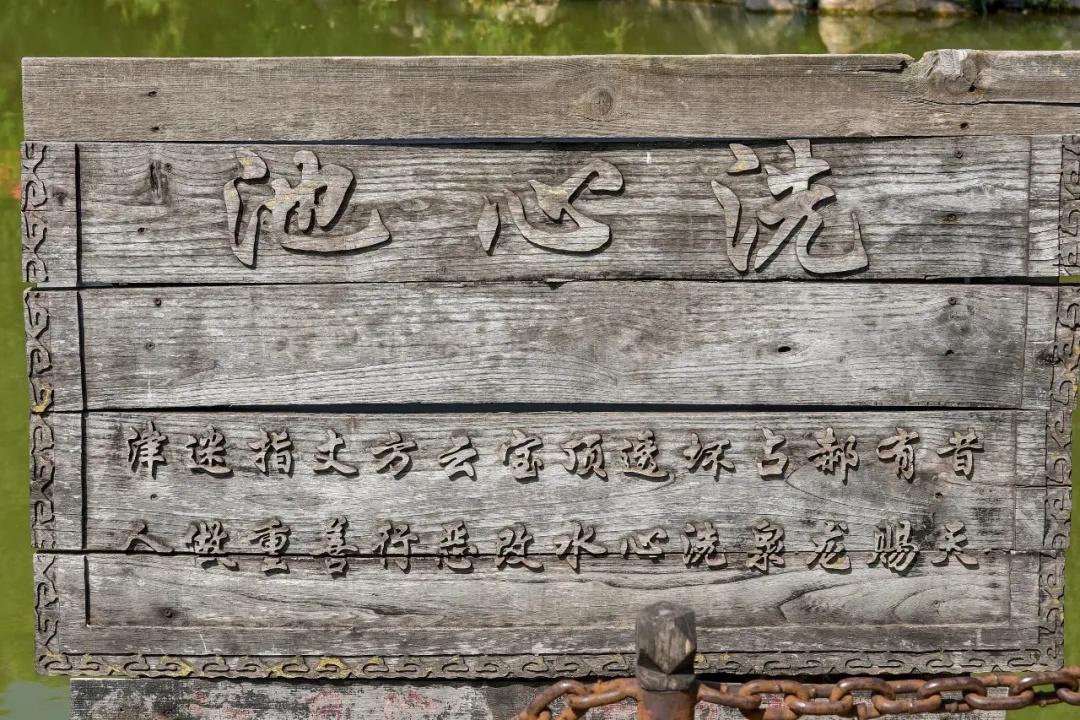 洗心池
昔有郝占坏透顶宝云方丈指迷津
天赐龙泉洗心水改恶行善重做人